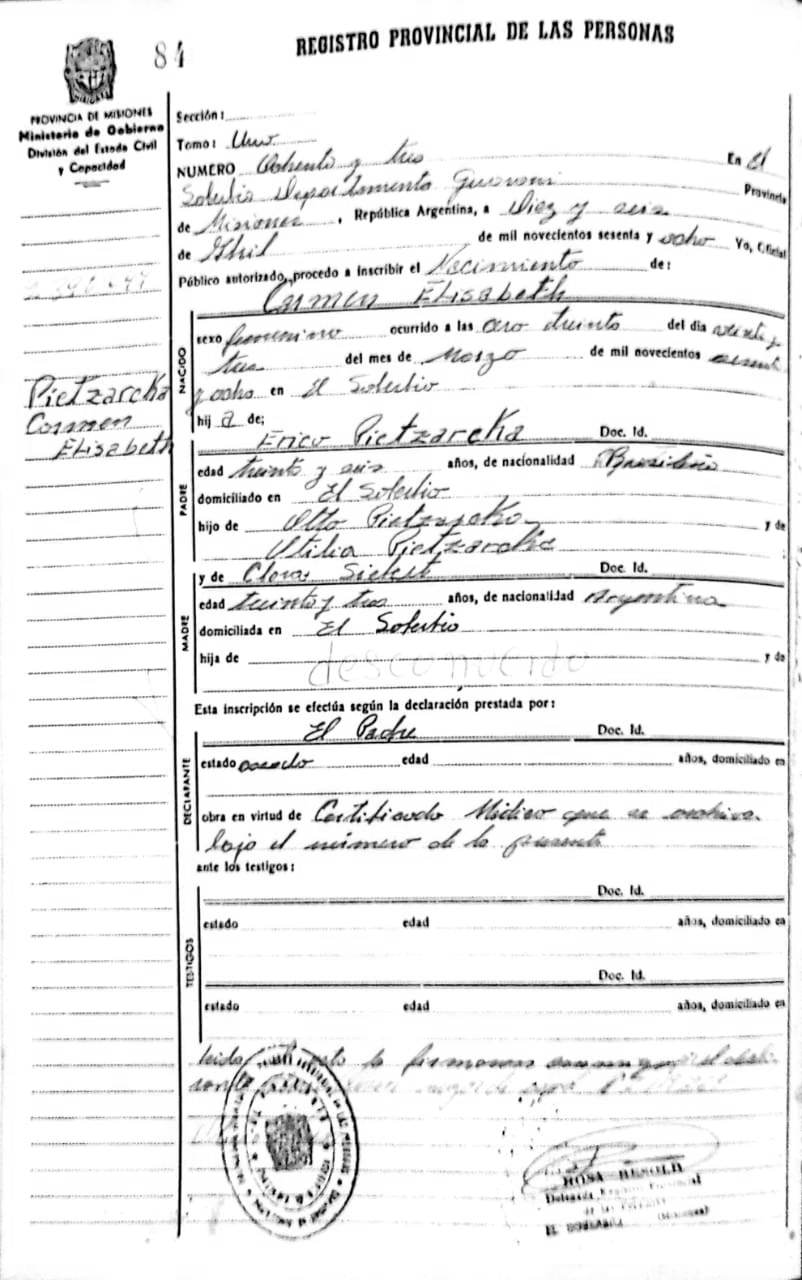 84
REGISTRO PROVINCIAL DE LAS PERSONAS
PROVINCIA DE MISIONES
Ministerio de Gobierno
División del Estado Civil
y Capacidad
Pietzarcka
Carmen
Elisabeth
Sección:
Tomo: Uno
NUMERO Ochenta y tres En El
Soberbio Departamento Guarani Provincia
de Misiones, República Argentina, a Diez y seis
de Abril de mil novecientos sesenta y ocho Yo, Oficial
Público autorizado, procedo a inscribir el Nacimiento de:
Carmen Elisabeth
NACIDO
sexo femenino ocurrido a las cero treinta del día veinte y
tres del mes de Marzo de mil novecientos sesenta
y ocho en El Soberbio
hij a de;
PADRE
Erico Pietzarcka Doc. Id.
edad treinta y seis años, de nacionalidad Brasileña
domiciliado en El Soberbio
hijo de Otto Pietzarcka y de
Utilia Pietzarcka
MADRE
y de Clara Doc. Id.
edad treinta y tres años, de nacionalidad Argentina
domiciliada en El Soberbio
hija de desconocido y de
Esta inscripción se efectúa según la declaración prestada por:
DECLARANTE
El Padre Doc. Id.
estado casado edad años, domiciliado en
obra en virtud de Certificado Médico que se archiva
bajo el número de la presente
ante los testigos:
TESTIGOS
Doc. Id.
estado edad años, domiciliado en
Doc. Id.
estado edad años, domiciliado en
ROSA
Delegada Registro Provincial
de las
EL SOBERBIO (Misiones)